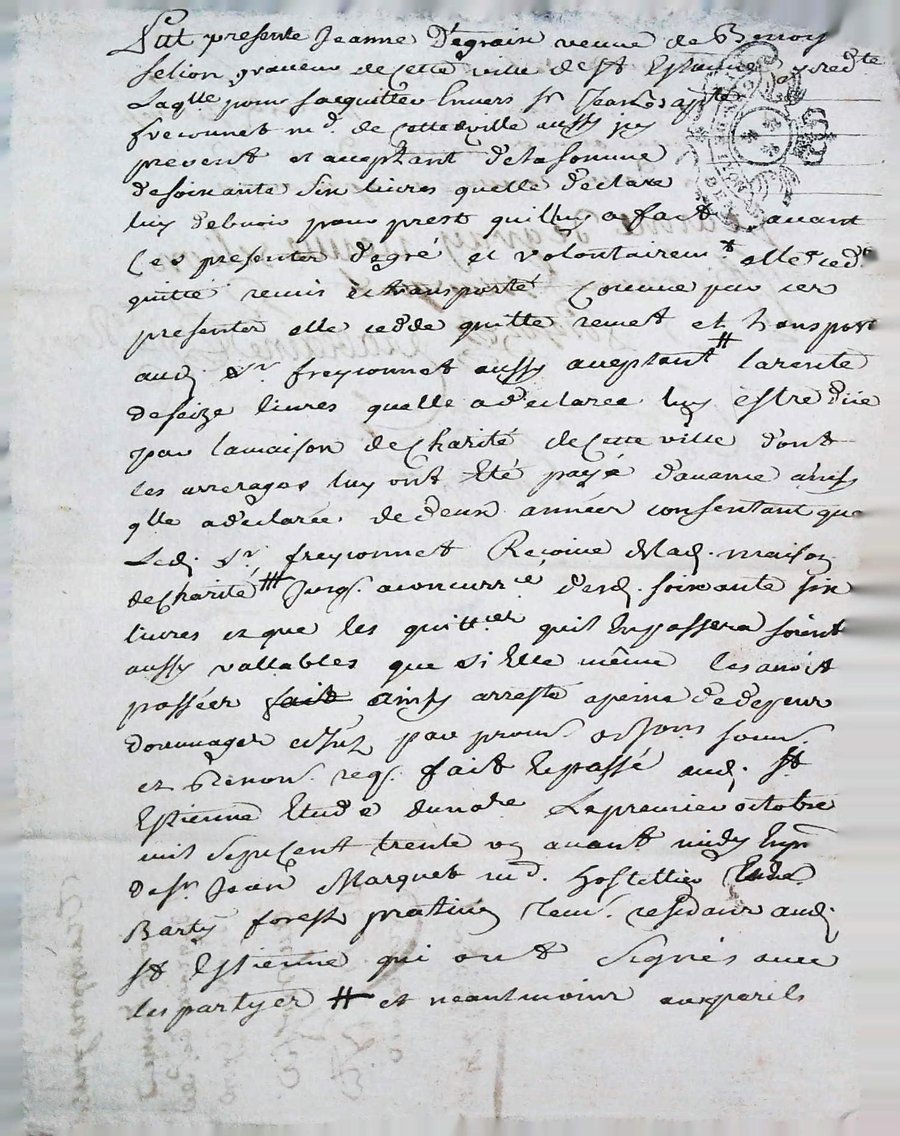 Fut presente Jeanne Degrain veuve de Benoy
selion graveur de cette ville de St Estienne
Laqlle pour saquitter Envers sr Jean bapte
freconnet md. de cette ville aussy icy
present et aceptant de la somme
de soixante six livres quelle declare
luy debvoir pour prest quil luy a fait avant
ces presentes de gré et volontairemt elle ced
quitte remis et transporté comme par ces
presentes elle cedde quitte remet et transport
aud. sr. freyconnet aussy aceptant # la rente
de seize livres quelle a declaree luy estre düe
par la maison de Charité de cette ville dont
les arrerages luy ont Eté payé davance ainsy
qlle a declarée de deux années consentant que
Led. sr. freyconnet Recoive de lad. maison
de charité ### jusqs. a concurrce desd. soixante six
livres et que les quittces quil En passera soient
aussy vallables que si Elle même les avoit
passées fait ainsy arresté a peine de depens
dommages et par proms. obligons soums.
et Renons. reqs. fait Et passé aud. St
Estienne Etude du nore Le premier octobre
mil sept Cent trente un avant midy En pn
de sr. Jean Marquet md. hostellier
Barty forest praticien resident aud.
St Estienne qui ont Signés avec
les partyes # et neantmoins aux perils